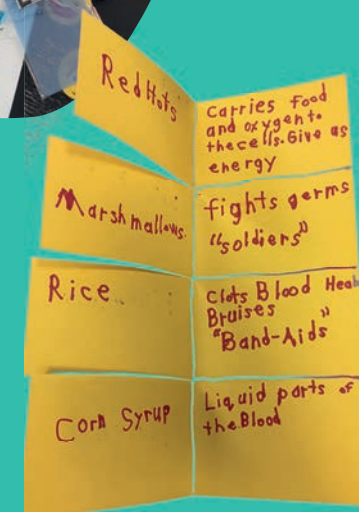 Red Hots
Carries Food
and oxygen to
the cells. Give as
energy
Marshmallows.
fights germs
"soldiers"
Rice
Clots Blood Heal
Bruises
"Band-Aids"
Corn Syrup
Liquid parts of
the Blood